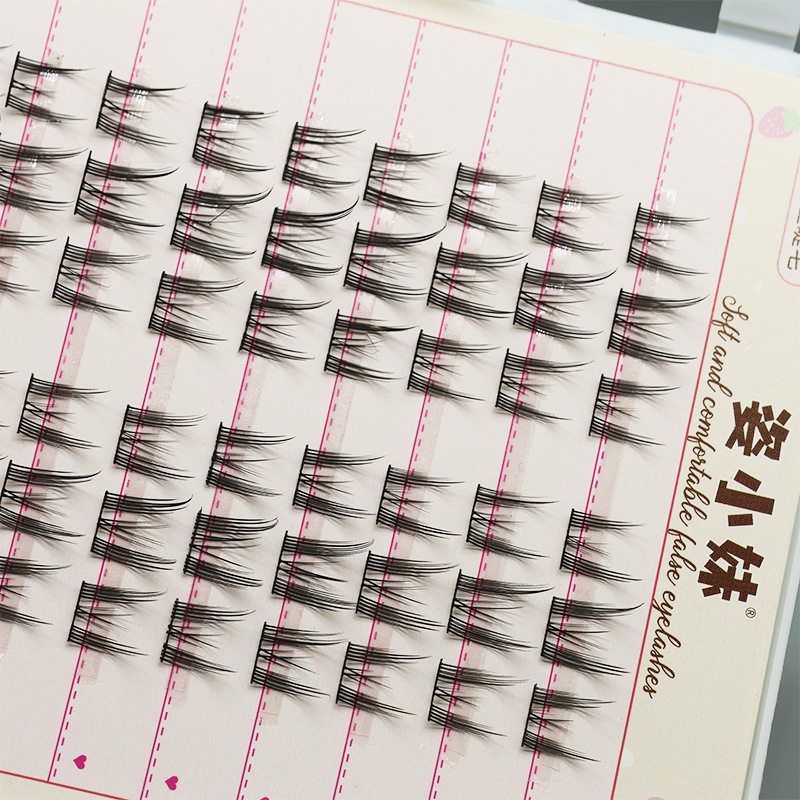 姿小妹®
Soft and comfortable false eyelashes